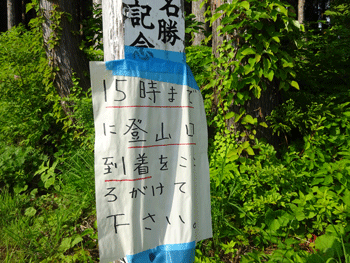 名勝
記念
15時まで
に登山口
到着をここ
ろがけて
下さい。